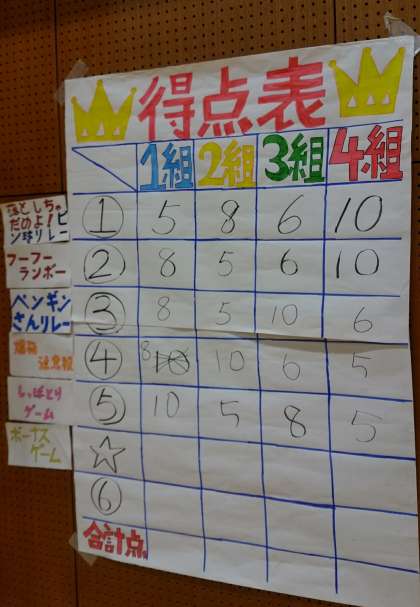 得点表
1組 2組 3組 4組
① 5 8 6 10
② 8 5 6 10
③ 8 5 10 6
④ 8 10 10 6 5
⑤ 10 5 8 5
☆
⑥
合計点
落としちゃ
だめよ!ピ
ン球リレー
フーフー
ランボー
ペンギン
さんリレー
爆弾
しっぽとり
ゲーム
ボーナス
ゲーム